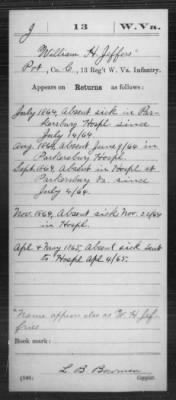 J 13 W.Va.
William H. Jeffers
Pvt., Co. C., 13 Reg't W. Va. Infantry.
Appears on Returns as follows:
July 1864, Absent sick in Par-
kersburg Hospl. since
July 4/64.
Aug. 1864, Absent June 9/64 in
Parkersburg Hospl.
Sept. 1864, Absent in Hospl. at
Parkersburg Va. since
July 4/64.
Nov. 1864, Absent sick Nov. 24/64
in Hospl.
Apl. & May 1865, Absent sick sent
to Hospl. Apl. 4/65.
*Name appears also as W. H. Jef-
fries
Book mark:
(546)
L. B. Bowman
Copyist.